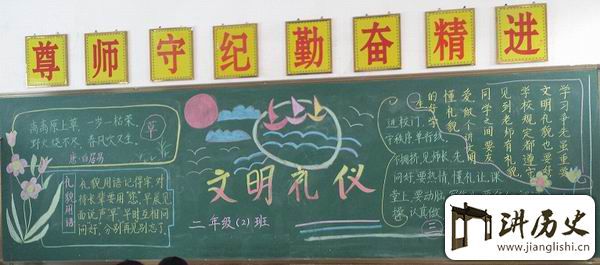 尊师守纪勤奋精进
草
离离原上草,一岁一枯荣
野火烧不尽,春风吹又生。
唐·白居易
礼貌用语
礼貌用语记得牢,对
待长辈要用“您”,早晨见
面说声“早”,平时互相问
问好,分别再见别忘了。
文明礼仪
二年级(2)班
学习争先虽重要
文明礼貌也要好
学校规定都遵守
见到老师有礼貌
同学之间要友
爱,做个讲文明
懂礼貌
的好学
生
进校门,
守秩序单行线,
不拥挤,见师长,先
问好,要热情,懂礼让,课
堂上,要动脑,
认真做
三
讲历史
www.jianglishi.cn